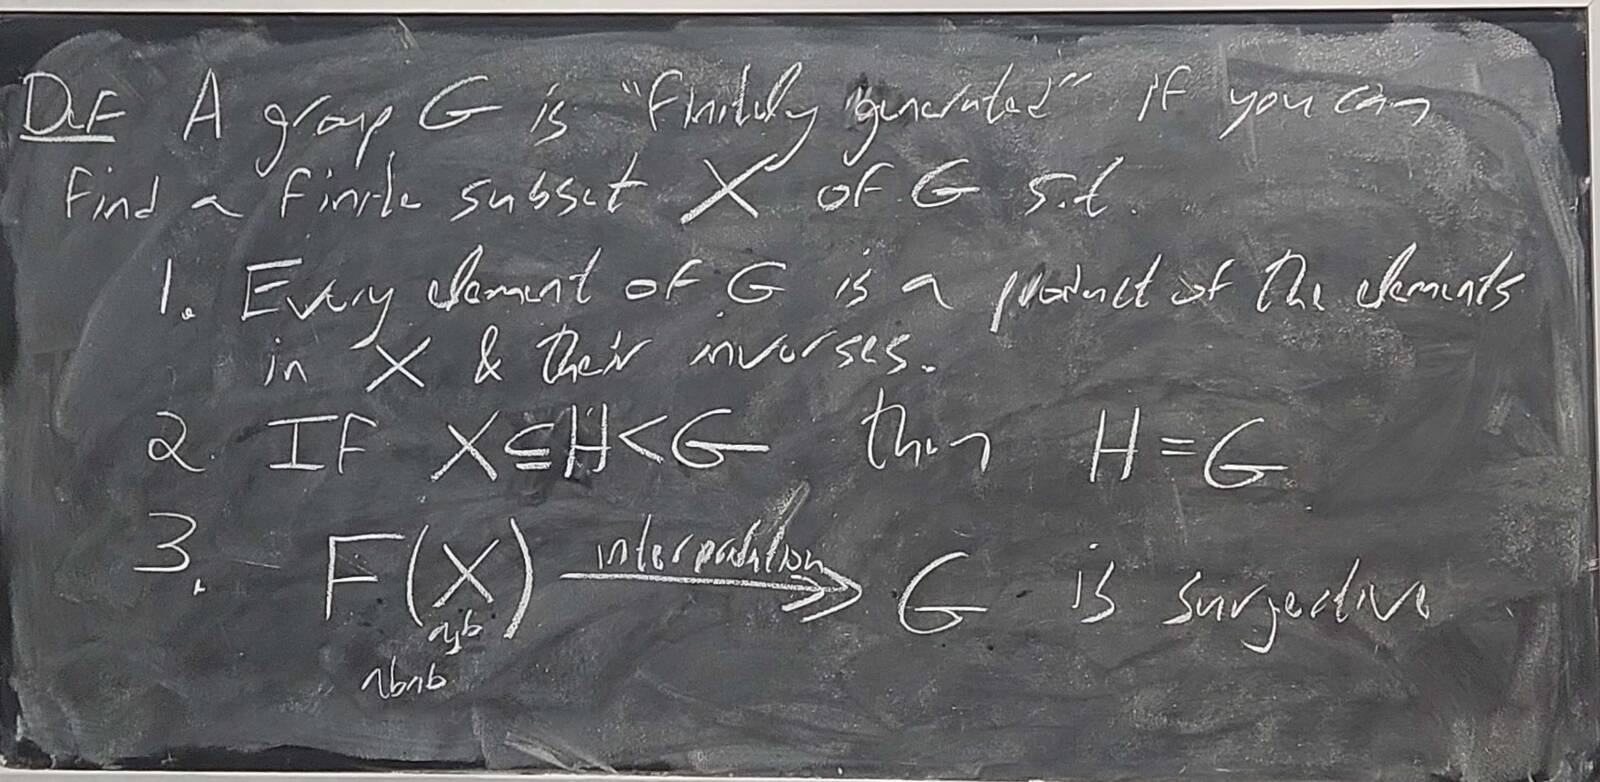 Def A group G is "finitely generated" if you can
find a finite subset X of G s.t.
1. Every element of G is a product of the elements
in X & their inverses.
2. If X⊆H<G then H=G
3. F(X) interpretation ↠ G is surjective
a,b
abab